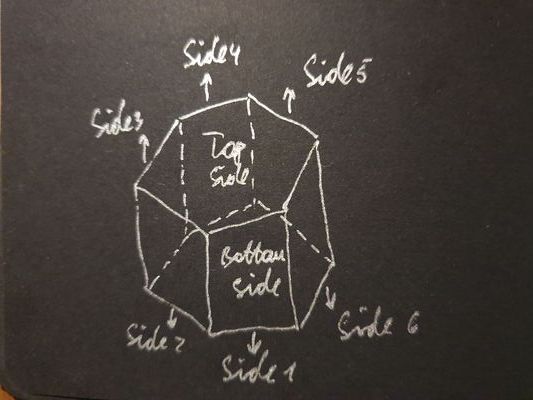 Side 4
Side 5
Side 3
Top
Side
Bottom
side
Side 6
Side 2
Side 1